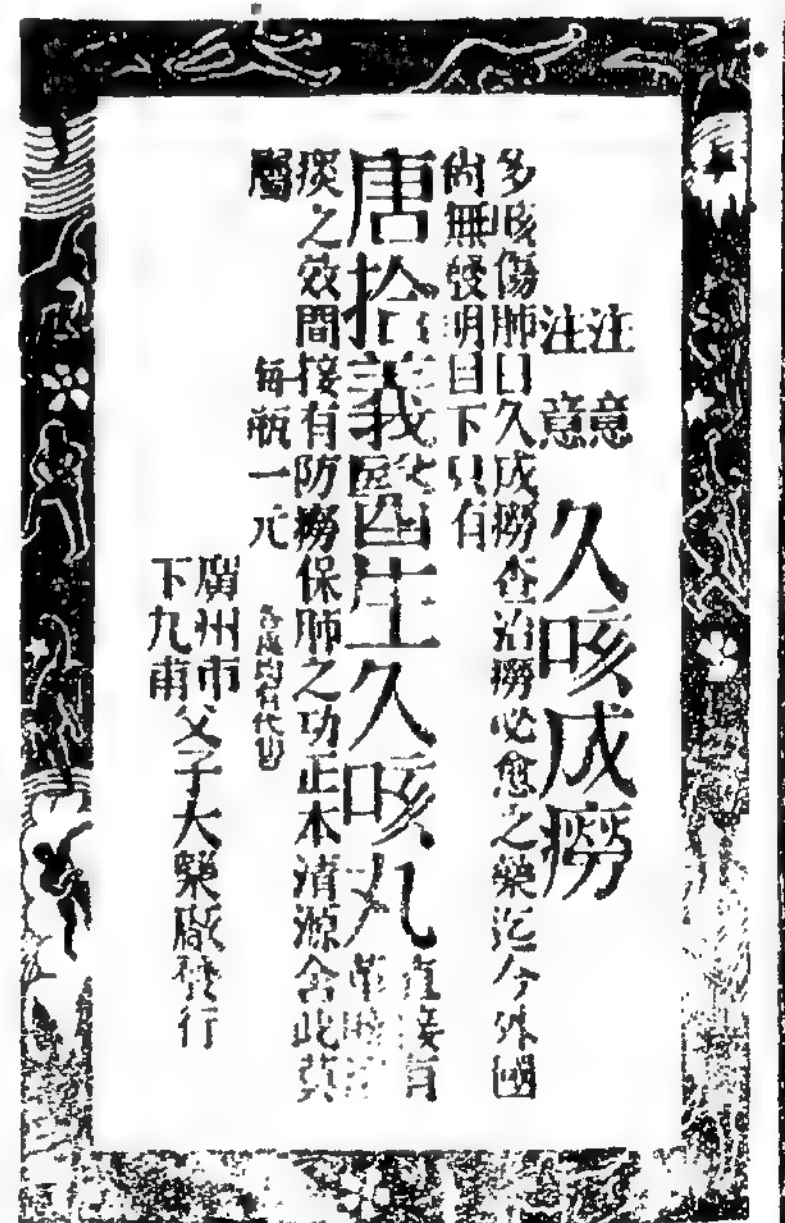 注意
注意
久咳成癆
多咳傷肺日久成癆查治癆必愈之藥迄今外國
尚無發明目下只有
唐拾義醫生久咳丸
直接有
痰之效間接有防癆保肺之功正本清源舍此莫
屬
每瓶一元
各處均有代售
廣州市
下九甫
父子大藥厰發行